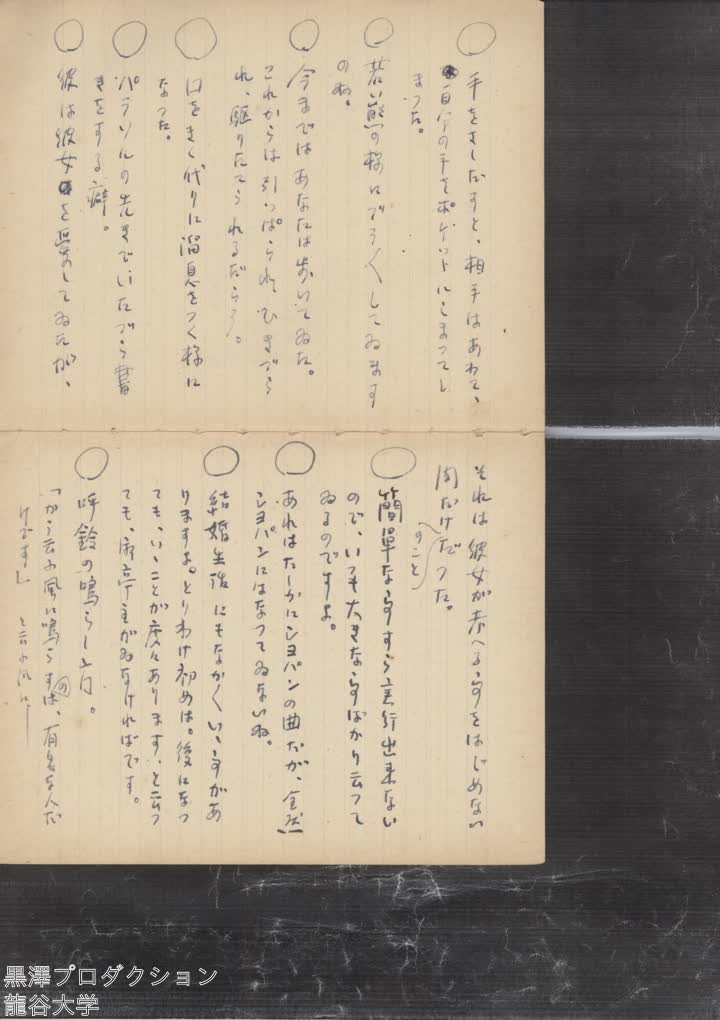 ○ 手をさしだすと、相手はあわてゝ、
自分の手をポケットにしまつてし
まつた。
○ 若い熊の様にでう〱してゐます
のね。
○ 今まではあなたは歩いてゐた。
これからは引つぱられ、ひきずら
れ、駆りたてられるだらう。
○ 口をきく代りに溜息をつく様に
なつた。
○ パラソルの先まで いたづら書
きをする癖。
○ 彼は彼女を愛してゐたが、
それは彼女が考へる事をはじめない
間だけだつた。
すこと
○ 簡単な事すら実行出来ない
ので、いつも大きな事ばかり云つて
ゐるのですよ。
○ あれはたしかにショパンの曲だが、全然
ショパンにはなつてゐないね。
○ 結婚生活にもなかくいゝ事があ
りますよ。とりわけ初めは。後になつ
ても、いゝことが度々あります、と云つ
ても、御亭主がゐなければです。
○ 呼鈴の鳴らし方。
「かう云ふ風に鳴らすのは、有名な人だ
けです」 と云ふ風に
黒澤プロダクション
龍谷大学